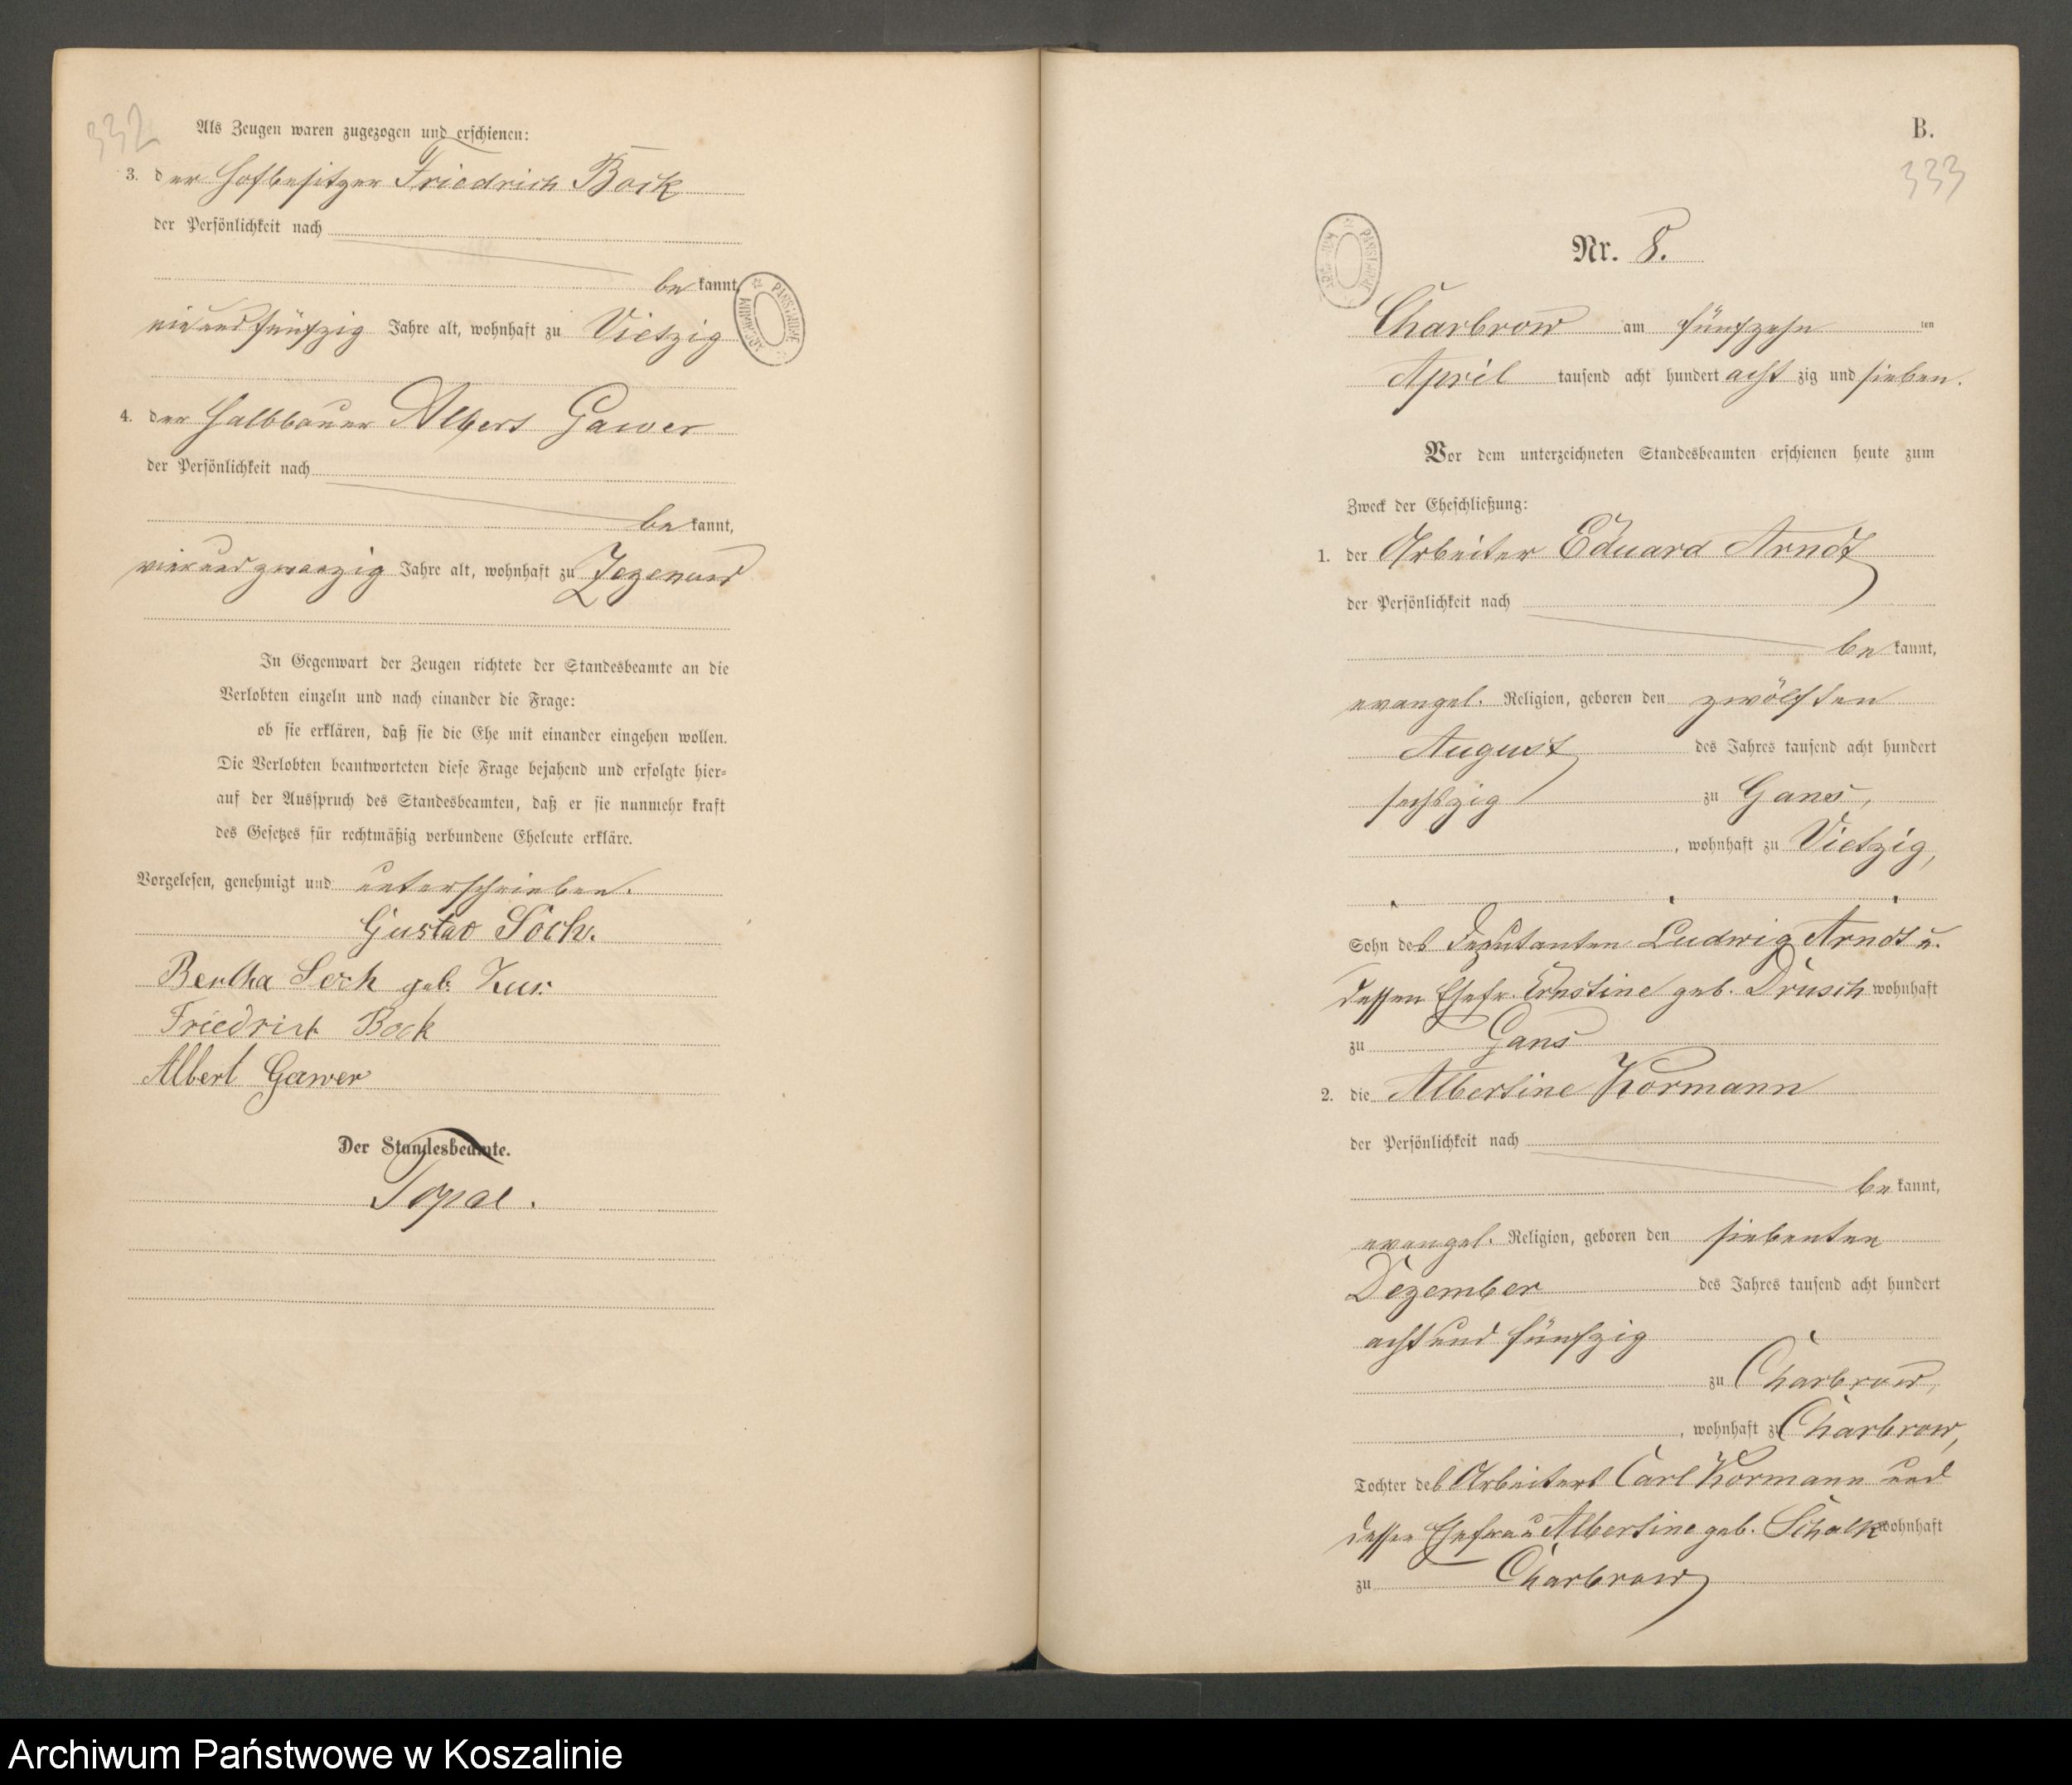 332
Als Zeugen waren zugezogen und erschienen:
3. der Hofbesitzer Friedrich Bock
der Persönlichkeit nach
bekannt,
Jahre alt, wohnhaft zu Vietzig
4. der Halbbauer Albert Gawer
der Persönlichkeit nach
bekannt,
vierundzwanzig Jahre alt, wohnhaft zu
In Gegenwart der Zeugen richtete der Standesbeamte an die
Verlobten einzeln und nach einander die Frage:
ob sie erklären, daß sie die Ehe mit einander eingehen wollen.
Die Verlobten beantworteten diese Frage bejahend und erfolgte hier-
auf der Ausspruch des Standesbeamten, daß er sie nunmehr kraft
des Gesetzes für rechtmäßig verbundene Eheleute erkläre.
Vorgelesen, genehmigt und unterschrieben.
Gustav
Bertha geb.
Friedrich Bock
Albert Gawer
Der Standesbeamte.
B.
333
Nr. 8.
Charbrow am fünfzehn ten
April tausend acht hundert acht zig und sieben.
Vor dem unterzeichneten Standesbeamten erschienen heute zum
Zweck der Eheschließung:
1. der Arbeiter Eduard Arndt
der Persönlichkeit nach
bekannt,
evangel. Religion, geboren den zwölften
August des Jahres tausend acht hundert
sechszig zu Gans,
, wohnhaft zu Vietzig,
Sohn des Deputanten Ludwig Arndt u.
dessen Ehefr. Ernstine geb. Drusch wohnhaft
zu Gans
2. die Albertine Kormann
der Persönlichkeit nach
bekannt,
evangel. Religion, geboren den siebenten
Dezember des Jahres tausend acht hundert
acht und fünfzig
zu Charbrow,
, wohnhaft zu Charbrow,
Tochter des Arbeiters Carl Kormann und
dessen Ehefrau Albertine geb. Schalk wohnhaft
zu Charbrow
Archiwum Państwowe w Koszalinie